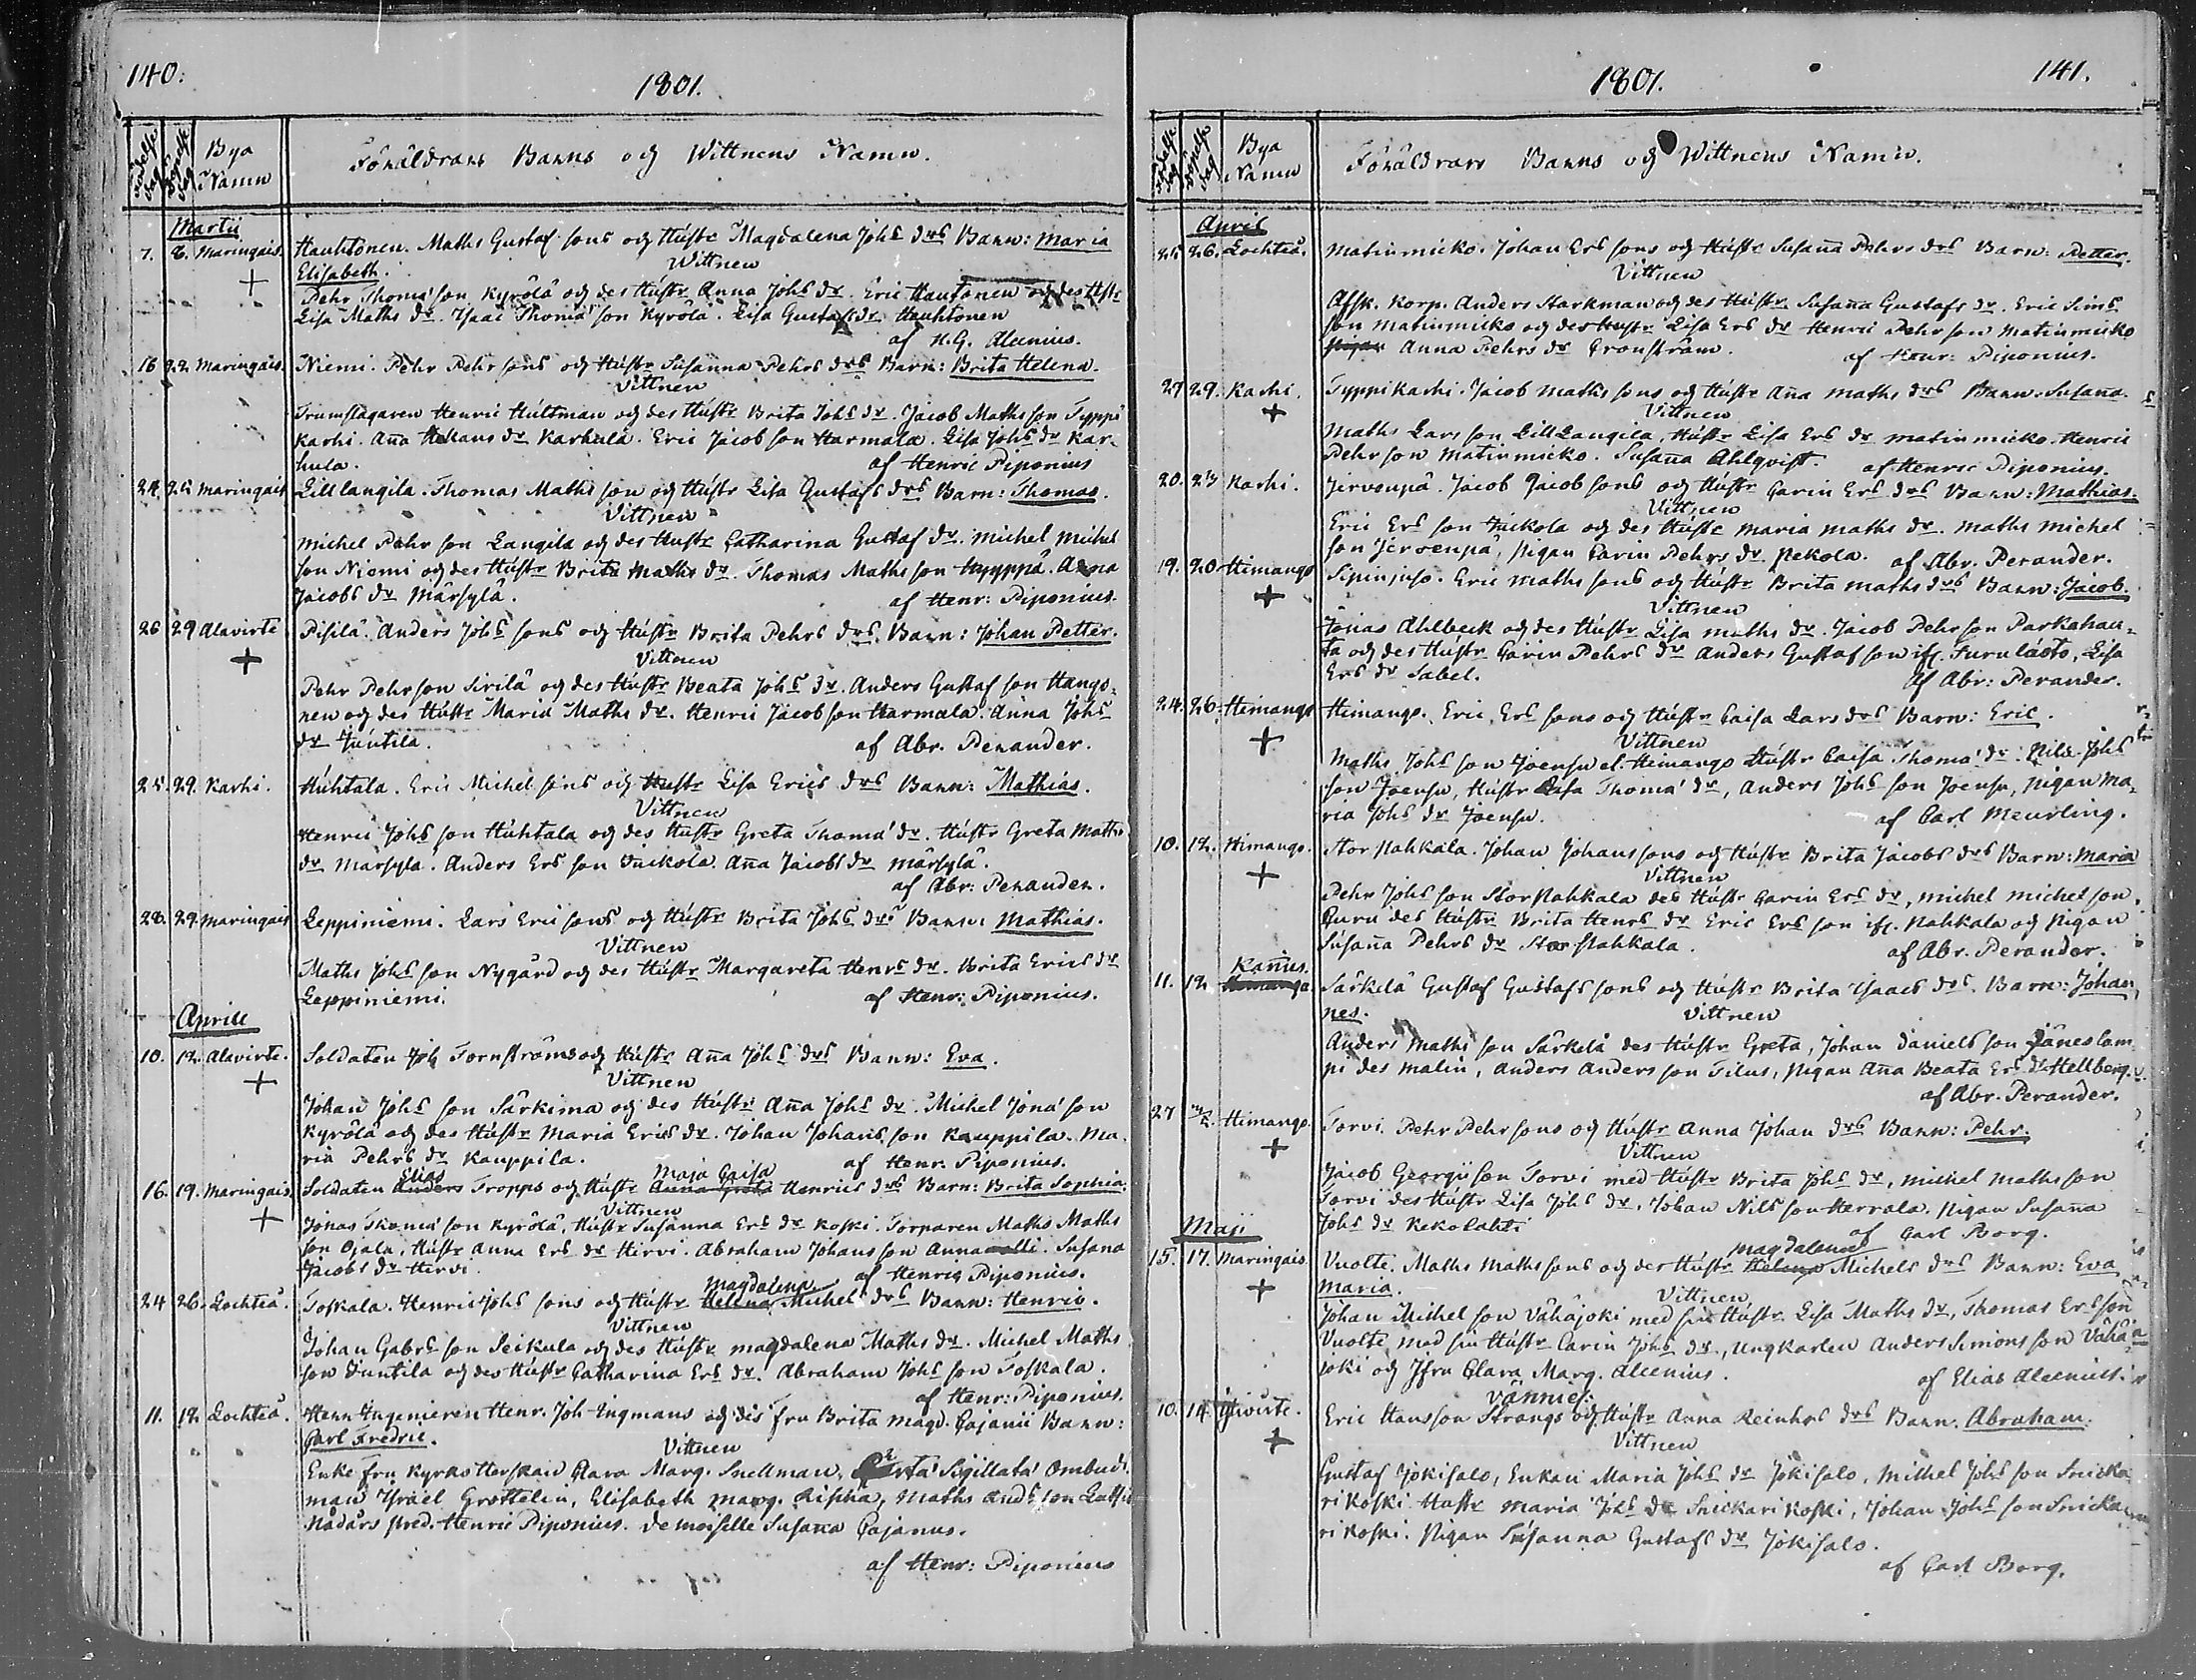 140:
1801.
födelse dag
döpelse dag
Bya Namn
Föräldrars Barns og Wittnens Namn.
Martii
7. 8. Maringais. Hauhtonen. Maths Gustaf sons og Hustr Magdalena Johs drs Barn: Maria
Elisabeth.
Wittnen
Pehr Thomæ son Kyrölä og des Hustr Anna Johs dr. Eric Hautonen og des Hstr
Lisa Maths dr. Isaac Thomæ son Kyrölä. Lisa Gustafs dr Hauhtonen
af H.G. Alcenius.
16 22 Maringais. Niemi. Pehr Pehr sons og Hustr Susanna Pehrs drs Barn: Brita Helena.
Vittnen
Trumslagaren Henric Hultman og des Hustr Brita Johs dr. Jacob Maths son Typpi
karhi. Aña Håkans dr Karhula. Eric Jacob son Harmala. Lisa Johs dr Kar-
hula.
af Henric Piponius
24. 25 Maringais Lilllangila. Thomas Maths son og Hustr Lisa Gustafs drs Barn: Thomas.
Vittnen
Michel Pehr son Langila og des Hustr Catharina Gustaf dr. Michel Michel
son Niemi og des Hustr Brita Maths dr. Thomas Maths son Anna
Jacobs dr Märsylä.
af Henr: Piponius.
26 29 Alavirte Pisilä. Anders Johs sons og Hustr Brita Pehrs drs. Barn: Johan Petter.
Vittnen
Pehr Pehrson Sirilä og des Hustr Beata Johs dr. Anders Gustaf son Hango-
nen og des Hustr Maria Maths dr. Henric Jacob son Harmala. Anna Johs
dr Juntila.
af Abr. Perander.
25. 29. Karhi. Huhtala. Eric Michel sons og Hustr Lisa Erics drs Barn: Mathias.
Vittnen
Henric Johs son Huhtala og des Hustr Greta Thomæ dr. Hustr Greta Maths
dr Marsyla. Anders Ers son Tuikola. Aña Jacobs dr Märsylä.
af Abr: Perander.
28. 29. Maringais Leppiniemi. Lars Eric sons og Hustr Brita Johs drs Barn: Mathias.
Vittnen
Maths Johs son Nygård og des Hustr Margareta Henrs dr. Brita Erics dr
Leppiniemi.
af Henr: Piponius.
Aprill
10. 12. Alavirte. Soldaten Joh Tornströms og Hustr Aña Johs drs Barn: Eva.
Vittnen
Johan Johs son Särkima og des Hustr Aña Johs dr. Michel Jonæ son
Kyrölä og des Hustr Maria Erics dr. Johan Johans son Kauppila. Ma-
ria Pehrs dr Kauppila.
af Henr. Piponius.
Elias Maja Caisa
16. 19. Maringais. Soldaten Anders Tropps og Hustr Anna Greta Henrics drs Barn: Brita Sophia.
Vittnen
Jonas Thomæ son Kyrölä, Hustr Susanna Ers dr Koski. Torparen Maths Maths
son Ojala, Hustr Anna Ers dr Hirvi. Abraham Johans son Susana
Jacobs dr Hervi.
af Henric Piponius.
Magdalena
24 26. Lochteå. Toskala. Henric Johs sons og Hustr Helena Michels drs Barn: Henric.
Vittnen
Johan Gabrs son Seikula og des Hustr Magdalena Maths dr. Michel Maths
son Juntila og des Hustr Catharina Ers dr. Abraham Johs son Toskala.
af Henr: Piponius.
11. 12. Lochteå. Herr Ingenieuren Henr. Joh. Ingmans og des fru Brita Magd. Cajanii Barn:
Carl Fredric.
Vittnen
Enke fru Kyrkoherskan Clara Marg. Snellman, Sigillata Ombuds-
man Israel Grottelin, Elisabeth Marg. Rispha, Maths Ands son
Nådårs pred. Henric Piponius. Demoiselle Susana Cajanus.
af Henr: Piponius
1801.
141.
födelse dag
döpelse dag
Bya Namn
Föräldrars Barns og Wittnens Namn.
April
25. 26. Lochteå. Matinmicko. Johan Ers sons og Hustr Susaña Pehrs drs Barn: Petter.
Vittnen
Afsk. Korp. Anders Harkman og des Hustr Susaña Gustafs dr. Eric Sims
son Matinmicko og des Hustr Lisa Ers dr Henric Pehr son Matinmicko
Pigan Anna Pehrs dr Cronström.
af Henr: Piponius.
27 29. Karhi. Typpikarhi. Jacob Maths sons og Hustr Aña Maths drs Barn. Susaña.
Vittnen
Maths Lars son LillLangila, Hustr Lisa Ers dr Matinmicko. Henric
Pehr son Matinmicko. Susaña Ahlqvist.
af Henric Piponius.
20. 23 Karhi. Jervenpä. Jacob Jacob sons og Hustr Carin Ers drs Barn: Mathias.
Vittnen
Eric Ers son Tuikola og des Hustr Maria Maths dr. Maths Michel
son Jervenpä, pigan Carin Pehrs dr Pekola.
af Abr. Perander.
19. 20 Himango Sipinjuso. Eric Maths sons og Hustr Brita Maths drs Barn: Jacob.
Vittnen
Jonas Ahlbeck og des Hustr Lisa Maths dr. Jacob Pehr son Parkahau-
ta og des Hustr Carin Pehrs dr Anders Gustaf son ifr. Turuläoto, Lisa
Ers dr Sabel.
af Abr: Perander.
24. 26. Himango Himango. Eric Ers sons og Hustr Caisa Lars drs Barn: Eric.
Vittnen
Maths Johs son Joensu el. Himango Hustr Caisa Thomæ dr. Nils Johs
son Joensu, Hustr Lisa Thomæ dr, Anders Johs son Joensu, pigan Ma-
ria Johs dr Joensu.
af Carl Meurling.
10. 12. Himango. Stor Pahkala. Johan Johans sons og Hustr Brita Jacobs drs Barn: Maria
Vittnen
Pehr Johs son StorPahkala des Hustr Carin Ers dr, Michel Michel son
Puru des Hustr Brita Henrs dr Eric Ers son ifr. Pahkala og Pigan
Susaña Pehrs dr Stor Pahkala.
af Abr. Perander.
Kañus.
11. 12 Himango. Särkelä Gustaf Gustafs sons og Hustr Brita Isaacs drs. Barn: Johan-
nes.
Vittnen
Anders Maths son Särkelä des Hustr Greta, Johan Daniels son Jäneslam-
pi des Malin, Anders Anders son Tilus, Pigan Aña Beata Ers dr Hellberg.
af Abr. Perander.
27 Himango. Torvi. Pehr Pehr sons og Hustr Anna Johan drs Barn: Pehr.
Vittnen
Jacob Georgii son Torvi med Hustr Brita Johs dr, Michel Maths son
Torvi des Hustr Lisa Johs dr, Johan Nils son Herrala. Pigan Susaña
Johs dr Kekolahti
af Carl Borg.
Maji
Magdalena
15. 17. Maringais. Vuolte. Maths Maths sons og des Hustr Helena Michels drs Barn: Eva
Maria.
Vittnen
Johan Michel son Vähäjoki med sin Hustr Lisa Maths dr, Thomas Ers son
Vuolte med sin Hustr Carin Johs dr, ungkarlen Anders Simons son Vähä-
joki og Jfru Clara Marg. Alcenius.
af Elias Alcenius.
10. 14. Ylivirte. Eric Hansson Strangs og Hustr Anna Reinhrs drs Barn. Abraham.
Vittnen
Gustaf Jokisalo, Enkan Maria Johs dr Jokisalo, Michel Johs son Snicka-
rikoski Hustr Maria Johs dr Snickarikoski, Johan Johs son Snicka-
rikoski. Pigan Susanna Gustafs dr Jokisalo.
af Carl Borg.